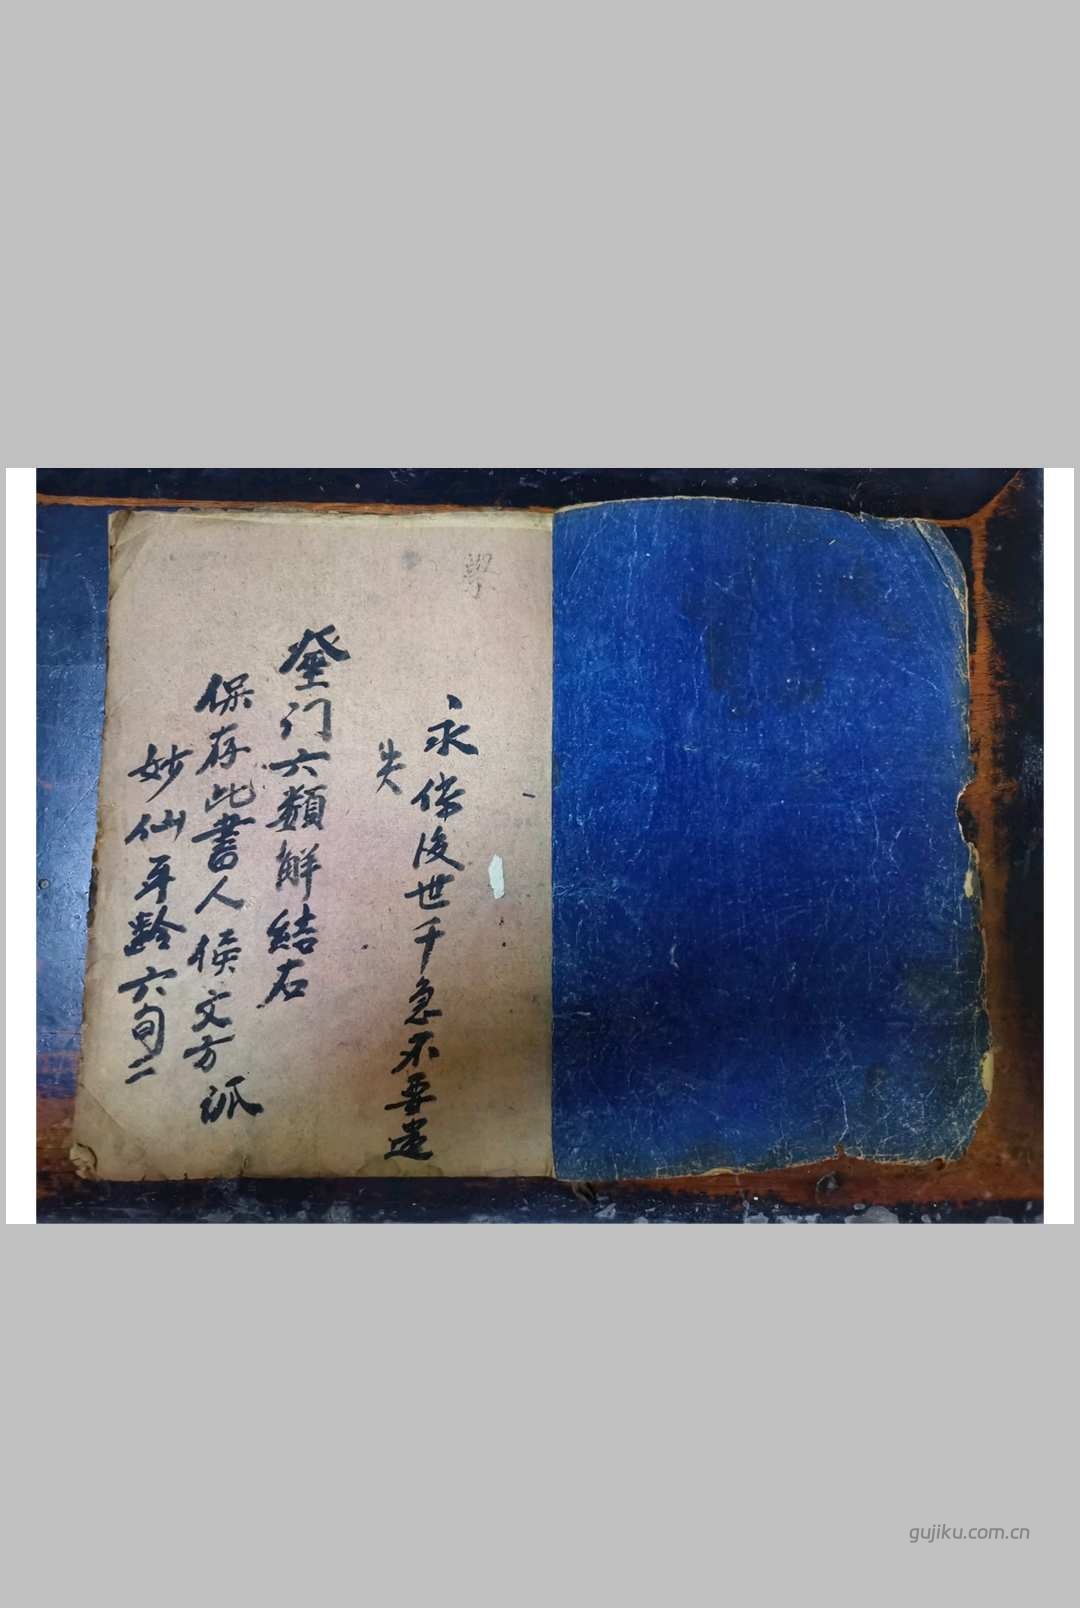 學
永传後世千急不要遗
失
癸门六類解結右
保存此書人侯文方
妙仙年齡六旬二
gujiku.com.cn